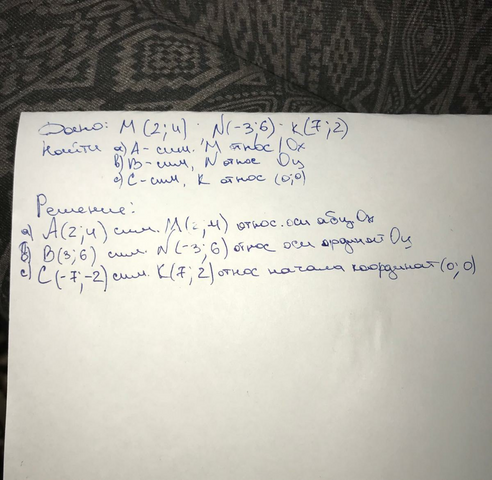 Дано: M(2;4) · N(-3;6) · K(7;2)
Найти а) A-сим. M относ Ox
в) B-сим, N относ Oy
с) C-сим, K относ (0;0)
Решение:
а) A(2;4) сим. M(2;4) относ. оси абц. Ox
в) B(3;6) сим. N(-3;6) относ оси ординат Oy
с) C(-7;-2) сим. K(7;2) относ начала координат (0;0)